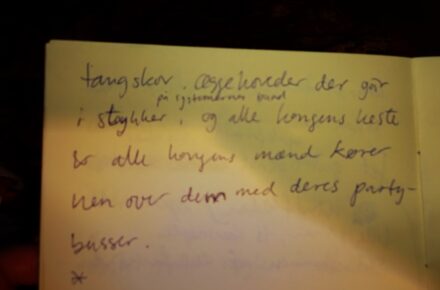 tangskov. æggehoveder der går
på systemernes bund
i stykker, og alle kongens heste
& alle kongens mænd kører
hen over dem med deres party-
busser.
*